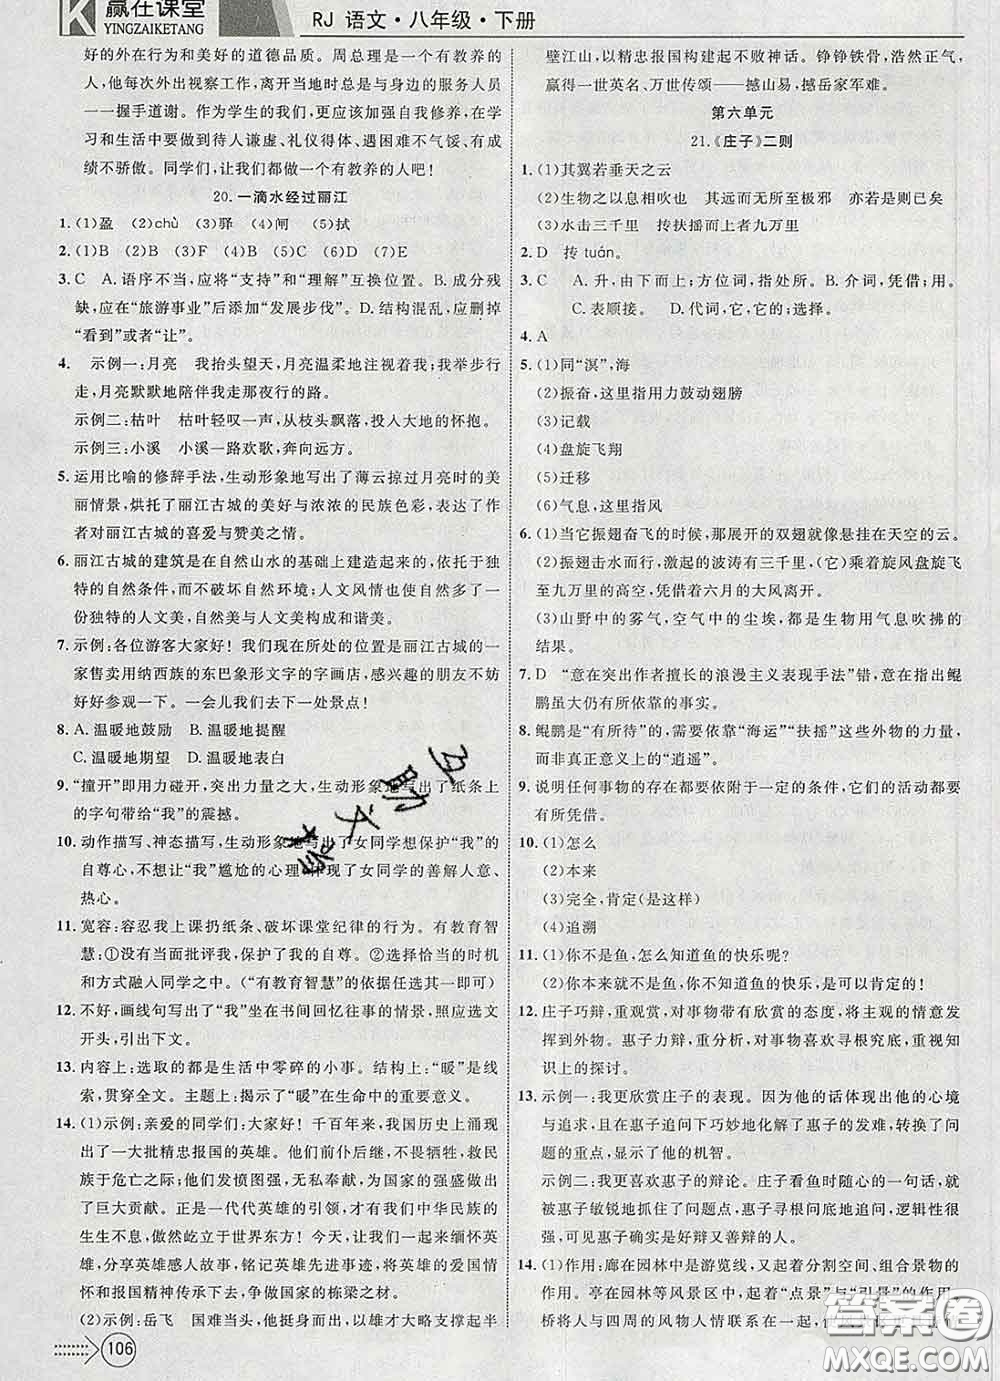 K 赢在课堂
YINGZAIKETANG
RJ 语文·八年级·下册
好的外在行为和美好的道德品质。周总理是一个有教养的
人,他每次外出视察工作,离开当地时总与身边的服务人员
一一握手道谢。作为学生的我们,要加强自我修养,在学
习和生活中要做到待人谦虚、礼仪得体、遇困难不气馁、有成
绩不骄傲。同学们,让我们都做一个有教养的人吧!
20.一滴水经过丽江
1.(1)盈 (2)chù (3)驿 (4)闸 (5)拭
2.(1)B (2)B (3)F (4)A (5)C (6)D (7)E
3.C A.语序不当,应将“支持”和“理解”互换位置。B.成分残
缺,应在“旅游事业”后添加“发展步伐”。D.结构混乱,应删掉
“看到”或者“让”。
4. 示例一:月亮 我抬头望天,月亮温柔地注视着我;我举步行
走,月亮默默地陪伴我走那夜行的路。
示例二:枯叶 枯叶轻叹一声,从枝头飘落,投入大地的怀抱。
示例三:小溪 小溪一路欢歌,奔向远方。
5.运用比喻的修辞手法,生动形象地写出了薄云掠过月亮时的美
丽情景,烘托了丽江古城的美好与浓浓的民族色彩,表达了作
者对丽江古城的喜爱与赞美之情。
6.丽江古城的建筑是在自然山水的基础上建造起来的,依托于独
特的自然条件,而不破坏自然环境;人文风情也使自然多了一
份独特的人文美,自然美与人文美构成和谐美。
7.示例:各位游客大家好!我们现在所处的位置是丽江古城的一
家售卖用纳西族的东巴象形文字的字画店,感兴趣的朋友不妨
好好参观一下。一会儿我们去下一处景点!
8.A.温暖地鼓励 B.温暖地提醒
C.温暖地期望 D.温暖地表白
9.“撞开”即用力碰开,突出力量之大,生动形象地写出了纸条上
的字句带给“我”的震撼。
10.动作描写、神态描写,生动形象地写出了女同学想保护“我”的
自尊心,不想让“我”尴尬的心理,体现了女同学的善解人意、
热心。
11.宽容:容忍我上课扔纸条、破坏课堂纪律的行为。有教育智
慧:①没有当面批评我,保护了我的自尊。②选择恰当的时机
和方式融入同学之中。(“有教育智慧”的依据任选其一即可)
12.不好,画线句写出了“我”坐在书间回忆往事的情景,照应选文
开头,引出下文。
13.内容上:选取的都是生活中零碎的小事。结构上:“暖”是线
索,贯穿全文。主题上:揭示了“暖”在生命中的重要意义。
14.(1)示例:亲爱的同学们:大家好!千百年来,我国历史上涌现
出了一大批精忠报国的英雄。他们不畏牺牲,不屈服,拯救民
族于危亡之际;他们发愤图强,无私奉献,为国家的强盛作出
了巨大贡献。正是一代代英雄的引领,才有我们中华民族的
生生不息、傲然屹立于世界东方!今天,让我们一起来缅怀英
雄,分享英雄故事,铭记英雄事迹,让我们继承英雄的爱国情
怀和报国精神传承下去,争做国家的栋梁之材。
(2)示例:岳飞 国难当头,他率领岳家军以雄才大略支撑起半
壁江山,以精忠报国构建起不败神话。铮铮铁骨,浩然正气,
赢得一世英名、万世传颂——撼山易,撼岳家军难。
第六单元
21.《庄子》二则
1.(1)其翼若垂天之云
(2)生物之以息相吹也 其远而无所至极邪 亦若是则已矣
(3)水击三千里 抟扶摇而上者九万里
2.D 抟tuán。
3.C A.升,由下而上;方位词,指处所。B.介词,凭借;用。
C.表顺接。 D.代词,它,它的;选择。
4.A
5.(1)同“溟”,海
(2)振奋,这里指用力鼓动翅膀
(3)记载
(4)盘旋飞翔
(5)迁移
(6)气息,这里指风
6.(1)当它振翅奋飞的时候,那展开的双翅就像悬挂在天空的云。
(2)振翅击水而行,激起的波涛有三千里,乘着旋风盘旋飞
至九万里的高空,凭借着六月的大风离开。
(3)山野中的雾气,空气中的尘埃,都是生物用气息吹拂的
结果。
7.D “意在突出作者擅长的浪漫主义表现手法”错,意在表明鲲
鹏虽大仍有所依靠的事实。
8.鲲鹏是“有所待”的,需要依靠“海运”“扶摇”这些外物的力量,
而非真正意义上的“逍遥”。
9.说明任何事物的存在都要依附于一定的条件,它们的活动都要
有所凭借。
10.(1)怎么
(2)本来
(3)完全,肯定(是这样)
(4)追溯
11.(1)你不是鱼,怎么知道鱼的快乐呢?
(2)你本来就不是鱼,你不知道鱼的快乐,是可以肯定的!
12.庄子巧辩,重观赏,对事物带有欣赏的态度,将主观的情意发
挥到外物。惠子力辩,重分析,对事物喜欢寻根究底,重视知
识上的探讨。
13.示例一:我更欣赏庄子的表现。因为他的话体现出他的心境
与追求,从而在不动声色中下巧妙地化解了惠子的发难,转移了
问题的重点,显示了他的机智。
示例二:我更喜欢惠子的辩论。庄子看鱼时随心的一句话,就
被惠子敏锐地抓住了问题,展开追问、反驳,逻辑性很强,从中
可以看出惠子的好辩又善辩的人。
14.(1)作用:廊在园林中是游览线,又起着分割空间、组合景物的
作用。亭在园林等风景区中,起着“点景”与“引景”的作用。
桥将人们与四周的风物人情联系在一起,
106
互助文档
答案圈
MXQE.COM